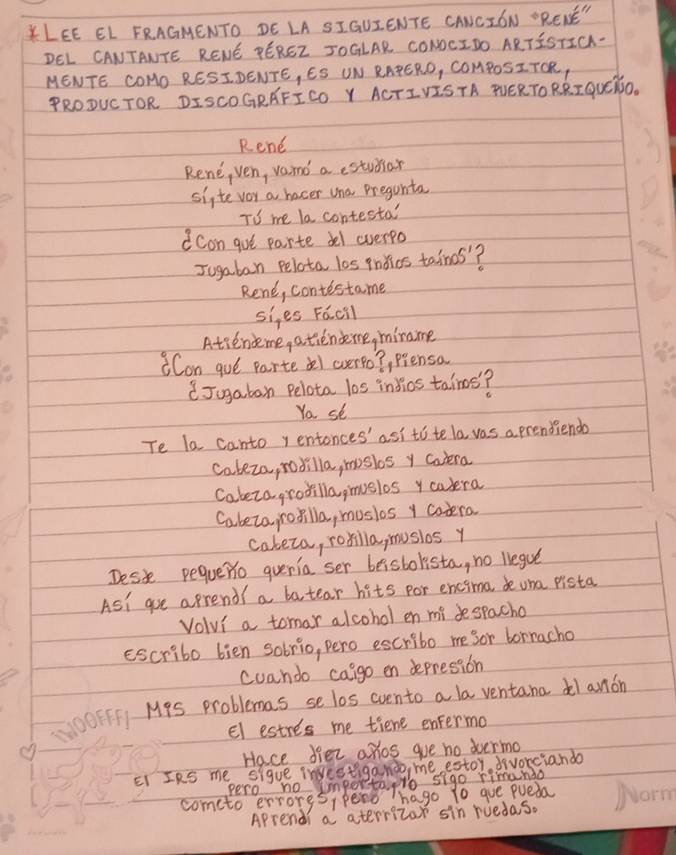 *LEE EL FRAGMENTO DE LA SIGUIENTE CANCIÓN "RENÉ"
DEL CANTANTE RENÉ PÉREZ JOGLAR CONOCIDO ARTÍSTICA-
MENTE COMO RESIDENTE, ES UN RAPERO, COMPOSITOR,
PRODUCTOR DISCOGRÁFICO Y ACTIVISTA PUERTORRIQUEÑO.
René
René, ven, vamo' a estudiar
sí, te voy a hacer una pregunta
Tú me la contesta'
¿Con qué parte del cuerpo
Jugaban pelota los indios taínos'?
René, contéstame
sí, es Fácil
Atiéndeme, atiéndeme, mírame
¿Con qué parte del cuerpo?, Piensa
¿Jugaban pelota los indios taínos'?
Ya sé
Te la canto y entonces' así tú te la vas aprendiendo
Cabeza, rodilla, muslos y cadera
Cabeza, rodilla, muslos y cadera
Cabeza, rodilla, muslos y cadera
cabeza, rodilla, muslos y
Desde pequeño quería ser beisbolista, no llegué
Así que aprendí a batear hits por encima de una pista
Volví a tomar alcohol en mi despacho
escribo bien sobrio, pero escribo mejor borracho
Cuando caigo en depresión
Mis problemas se los cuento a la ventana del avión
El estrés me tiene enfermo
Hace diez años que no duermo
El IRS me sigue investigando, me estoy divorciando
Pero no importa, yo sigo rimando
cometo errores, pero hago lo que pueda
Aprendí a aterrizar sin ruedas.
¡WOOFFF!
Norm